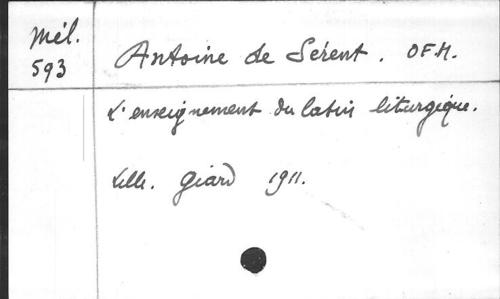 Mél.
593
Antoine de Sérent. OFM.
L'enseignement du latin liturgique.
Lille. Giard 1911.